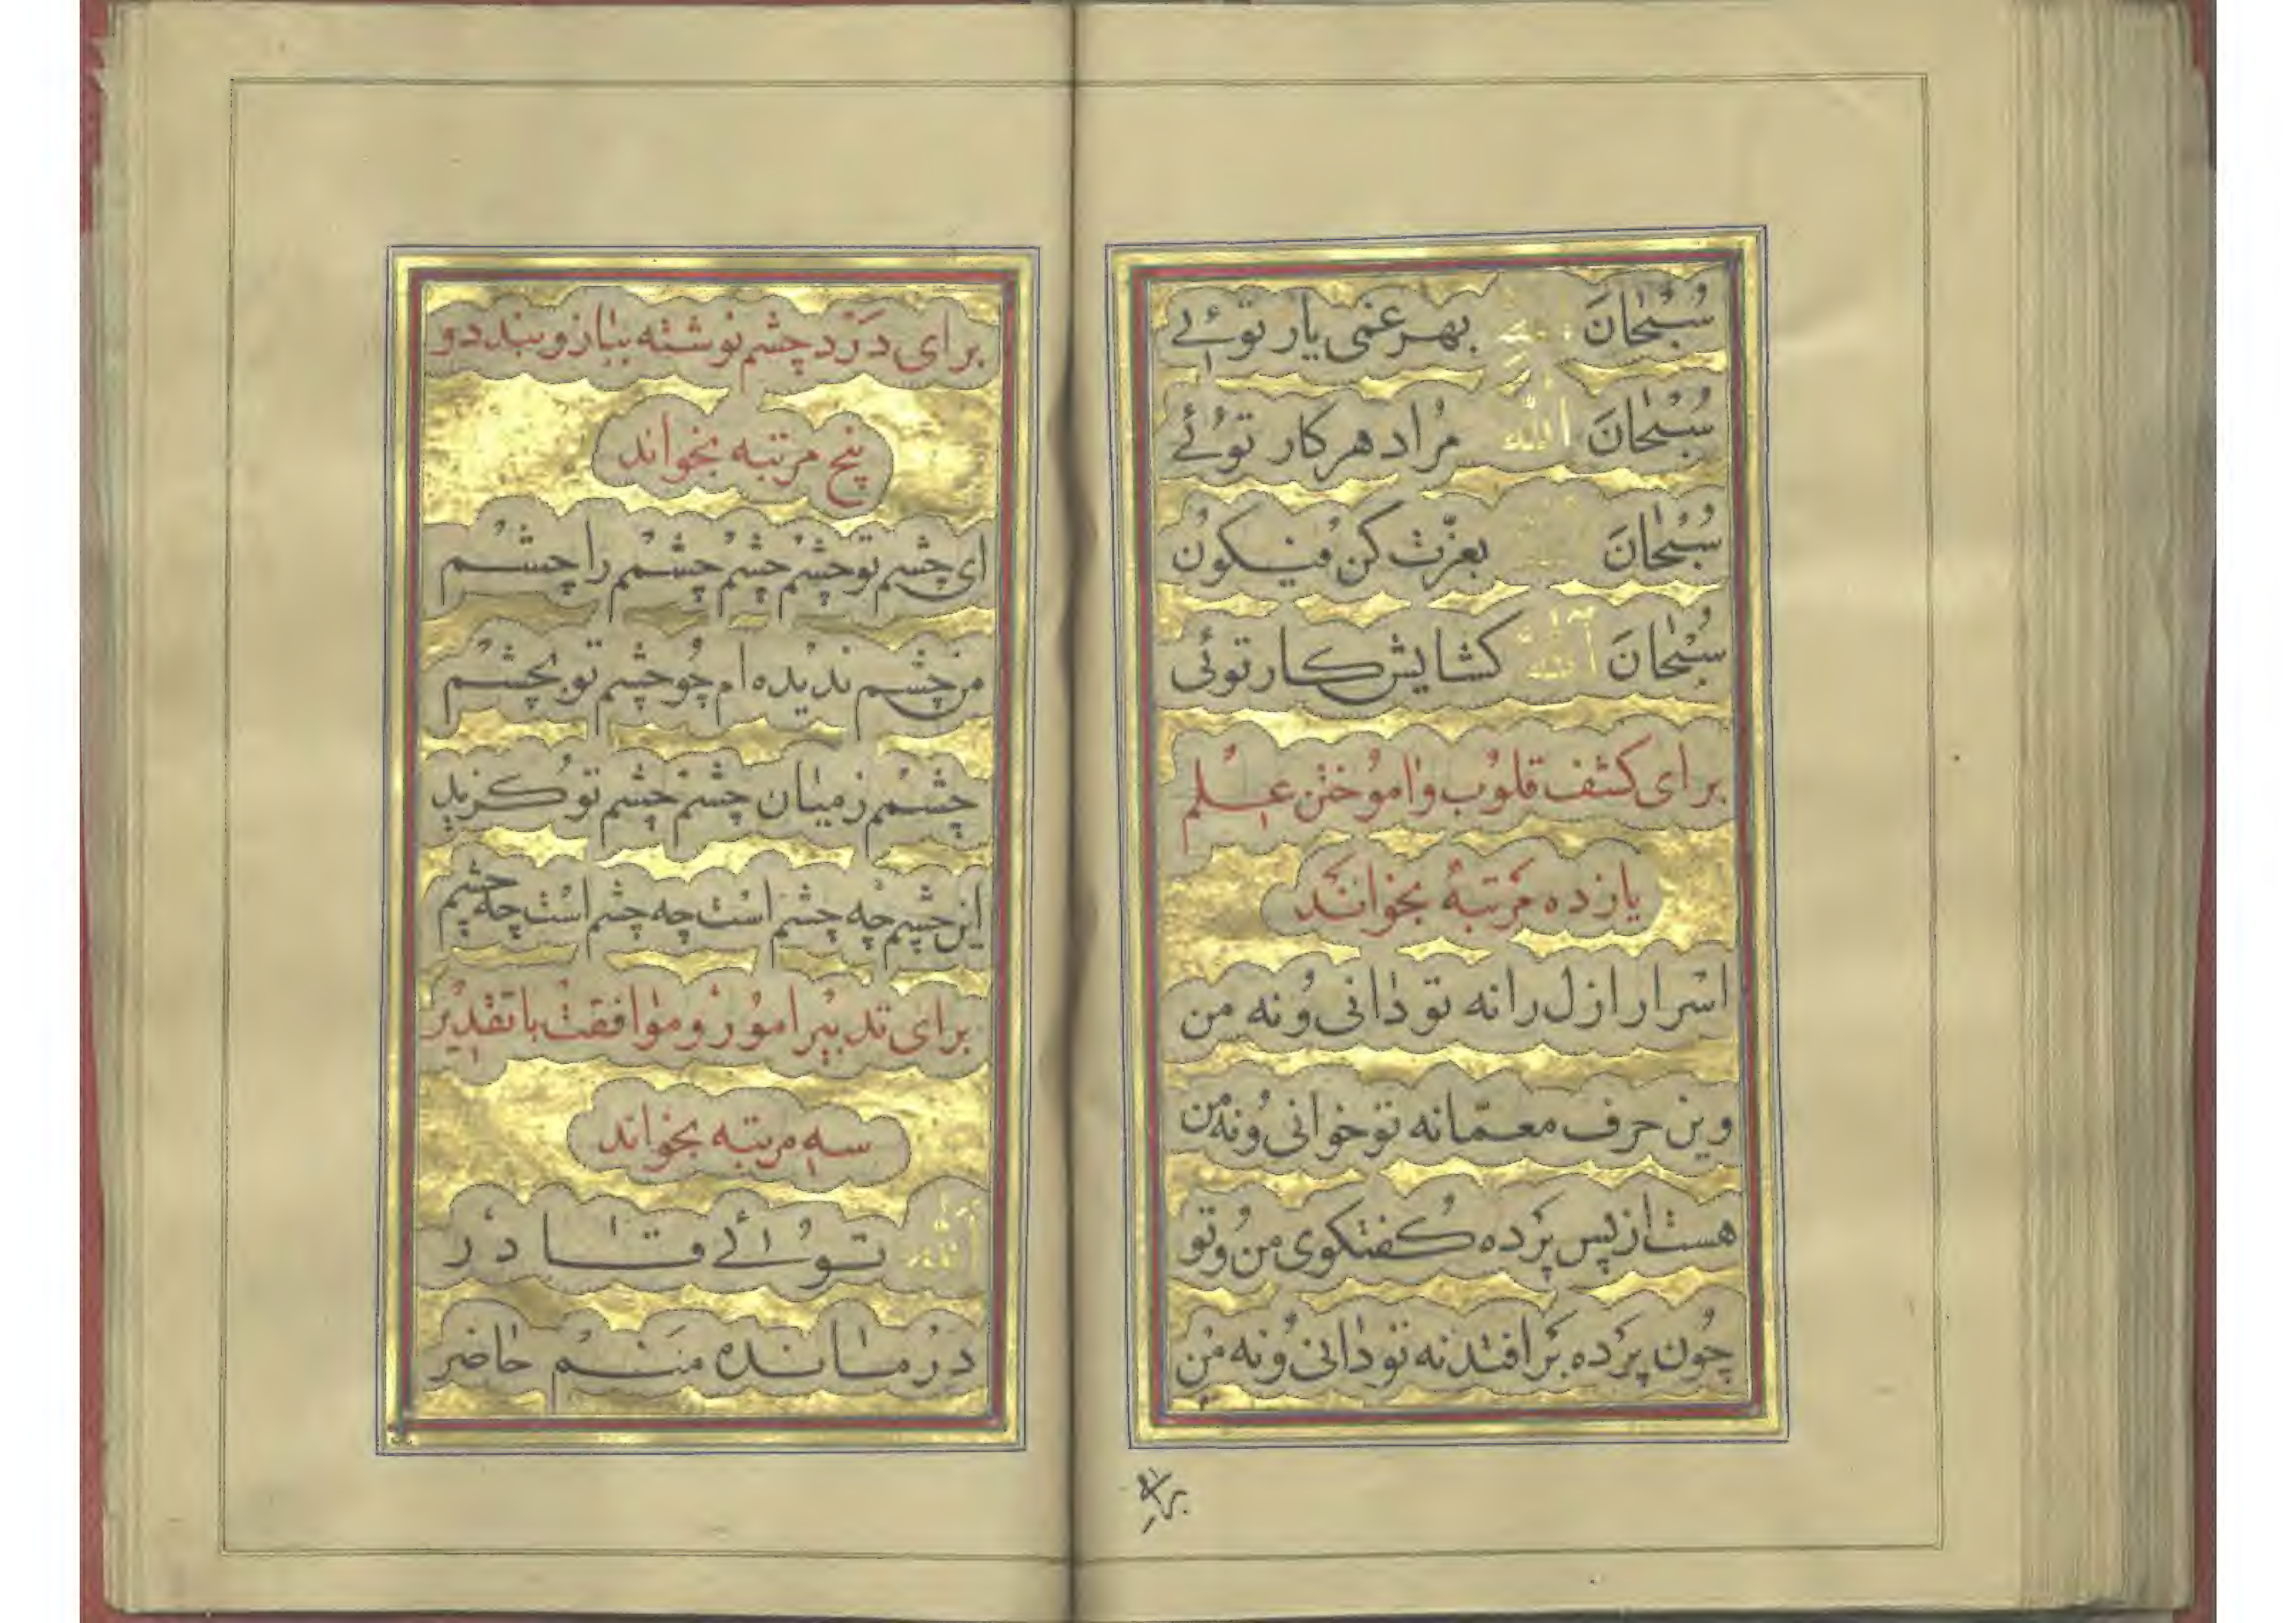 سُبْحانَ الله بهر غمی یار توئے
سُبْحانَ اللّه مُراد هر کار توئے
سُبْحانَ بعزّت کن فیکون
سُبْحانَ اللّه کشایش کار توئی
برای کشف قلوب واموختن علم
یازده مرتبه بخواند
اسرار ازل را نه تو دانی و نه من
وین حرف معمّا نه تو خوانی و نه من
هست از پس پرده گفتگوی من و تو
چون پرده برافتد نه تو دانی و نه من
برای
برای درد چشم نوشته ببازو ببندد و
پنج مرتبه بخواند
ای چشم تو چشم چشم چشم را چشم
من چشم ندیده ام چو چشم تو بچشم
چشم ز میان چشم چشم تو گزید
این چشم چه چشم است چه چشم است چه چشم
برای تدبیر امور و موافقت با تقدیر
سه مرتبه بخواند
الله توئے قادر
درمانده منم حاضر